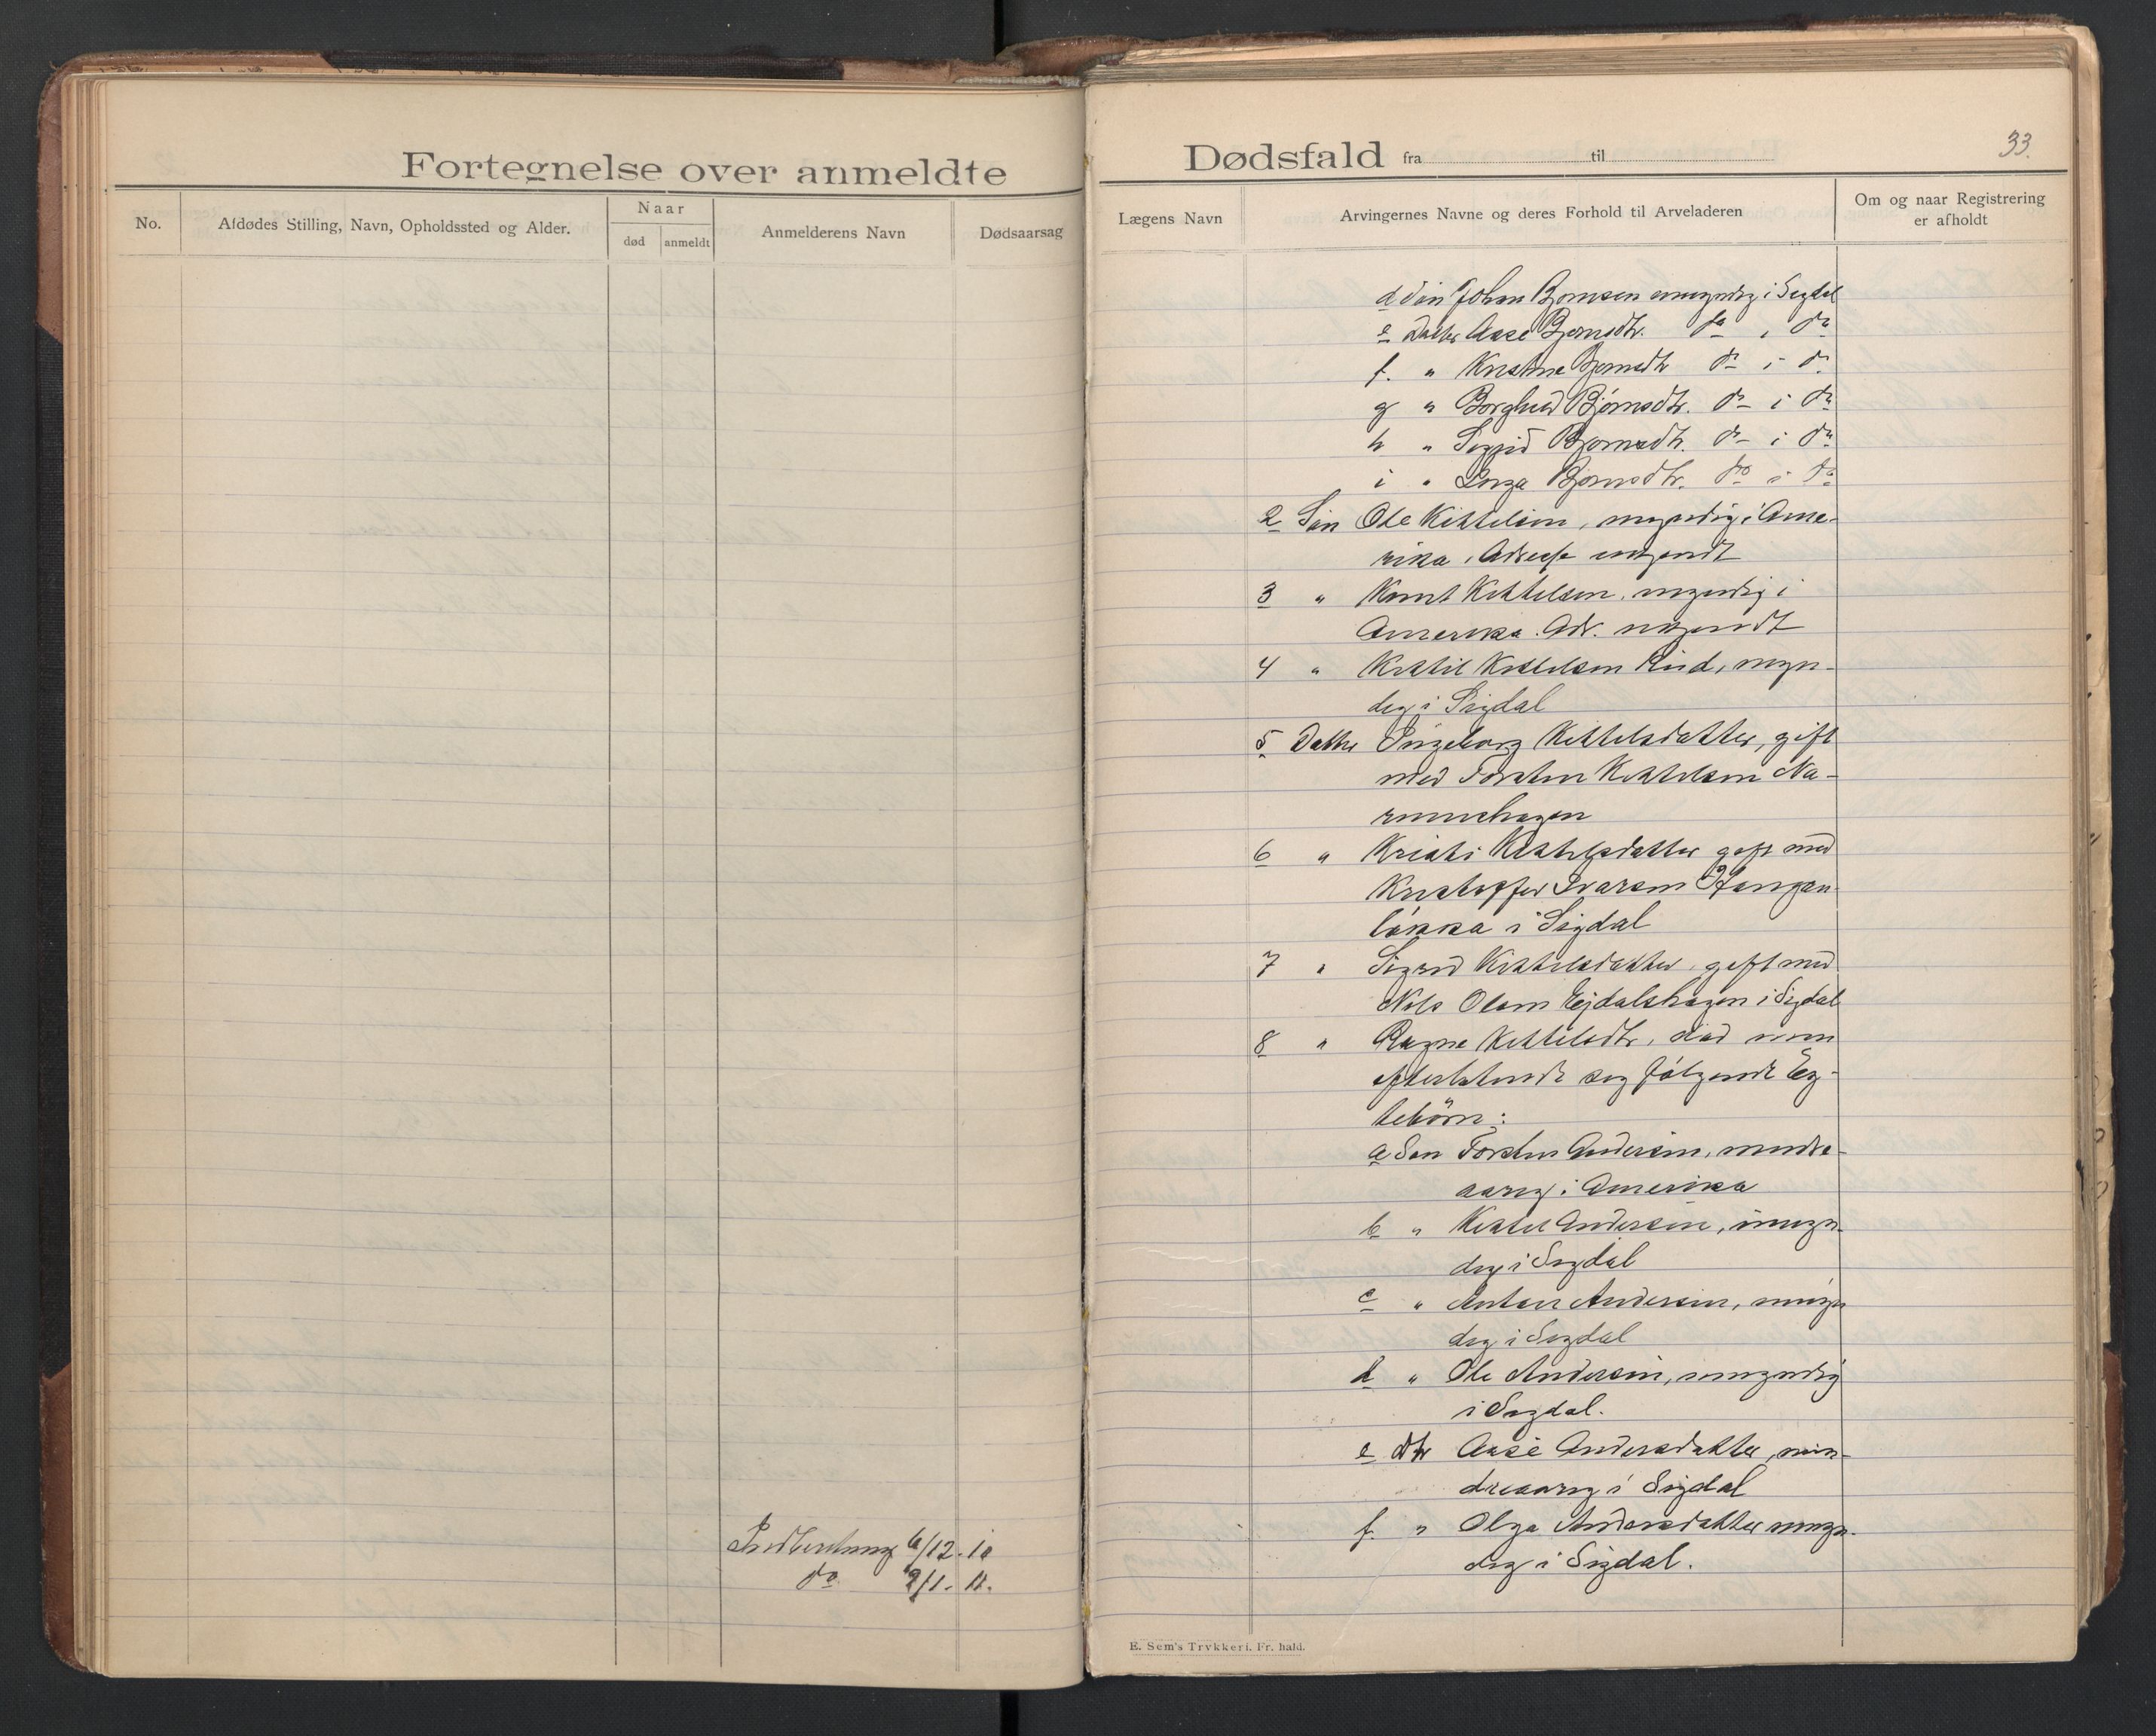 Fortegnelse over anmeldte
No.
Afdødes Stilling, Navn, Opholdssted og Alder.
Naar
død
anmeldt
Anmelderens Navn
Dødsaarsag
Indberetning 6/12. 10
do 2/1. 11.
33.
Dødsfald fra til
Lægens Navn
Arvingernes Navne og deres Forhold til Arveladeren
Om og naar Registrering
er afholdt
d Søn Johan Bjørnsen umyndig i Sigdal
e Datter Aase Bjørnsdtr. do i do
f. " Kristine Bjørnsdtr do i do
g " Borghild Bjørnsdtr. do i do
h " Sigrid Bjørnsdtr. do i do
i " Inga Bjørnsdtr. do i do
2 Søn Ole Kittelsen, myndig i Ame-
rika, Adresse ukjendt
3 " Knut Kittelsen, myndig i
Amerika. Adr. ukjendt
4 " Kittil Kittelsen Lind, myn-
dig i Sigdal
5 Datter Ingeborg Kittelsdatter, gift
med Torsten Kittelsen Na-
rumshagen
6 " Kristi Kittelsdatter gift med
Kristoffer Ivarsen Haugan-
løkka i Sigdal
7 " Sigrid Kittelsdatter, gift med
Nils Olsen Ejdalshagen i Sigdal
8 " Ragne Kittelsdtr, død men
efterlatende sig følgende Eg-
tebørn:
a Søn Torsten Andersen, mindre-
aarig i Amerika
b " Kittel Andersen, umyn-
dig i Sigdal
c " Anton Andersen, umyn
dig i Sigdal
d " Ole Andersen, umyndig
i Sigdal.
e dtr Aase Andersdatter, min-
dreaarig i Sigdal
f. " Olga Andersdatter umyn-
dig i Sigdal.
E. Sem's Trykkeri. Fr. hald.